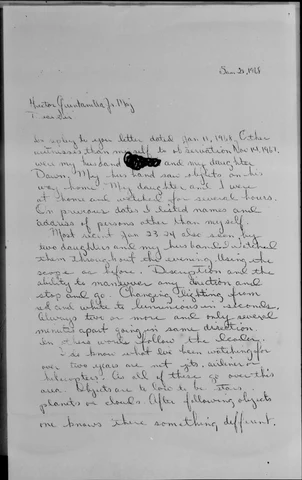 Jan 25, 1968
Hector Quintanilla Jr. Maj
In reply to your letter dated Jan. 11, 1968. Other
witnesses than myself to observation Nov 14, 1967.
were my husband and my daughter
Dawn. My husband saw objects on his
way home. My daughter and I were
at home and watched for several hours.
On previous dates I listed names and
address of persons other than myself.
Most recent Jan 23 24 also seen by
two daughters and my husband watched
them throughout the evening. Using the
scope as before. Description and the
ability to maneuver any direction and
stop and go. Changing lighting from
red and white to luminious in seconds.
Always two or more and only several
minutes apart going in same direction.
In threes would follow the leader.
I do know what I've been watching for
over two years are not jets, airliners or
helicopters. As all of these go over this
area. Objects are to low to be stars
planets or clouds. After following objects
one knows there something different.